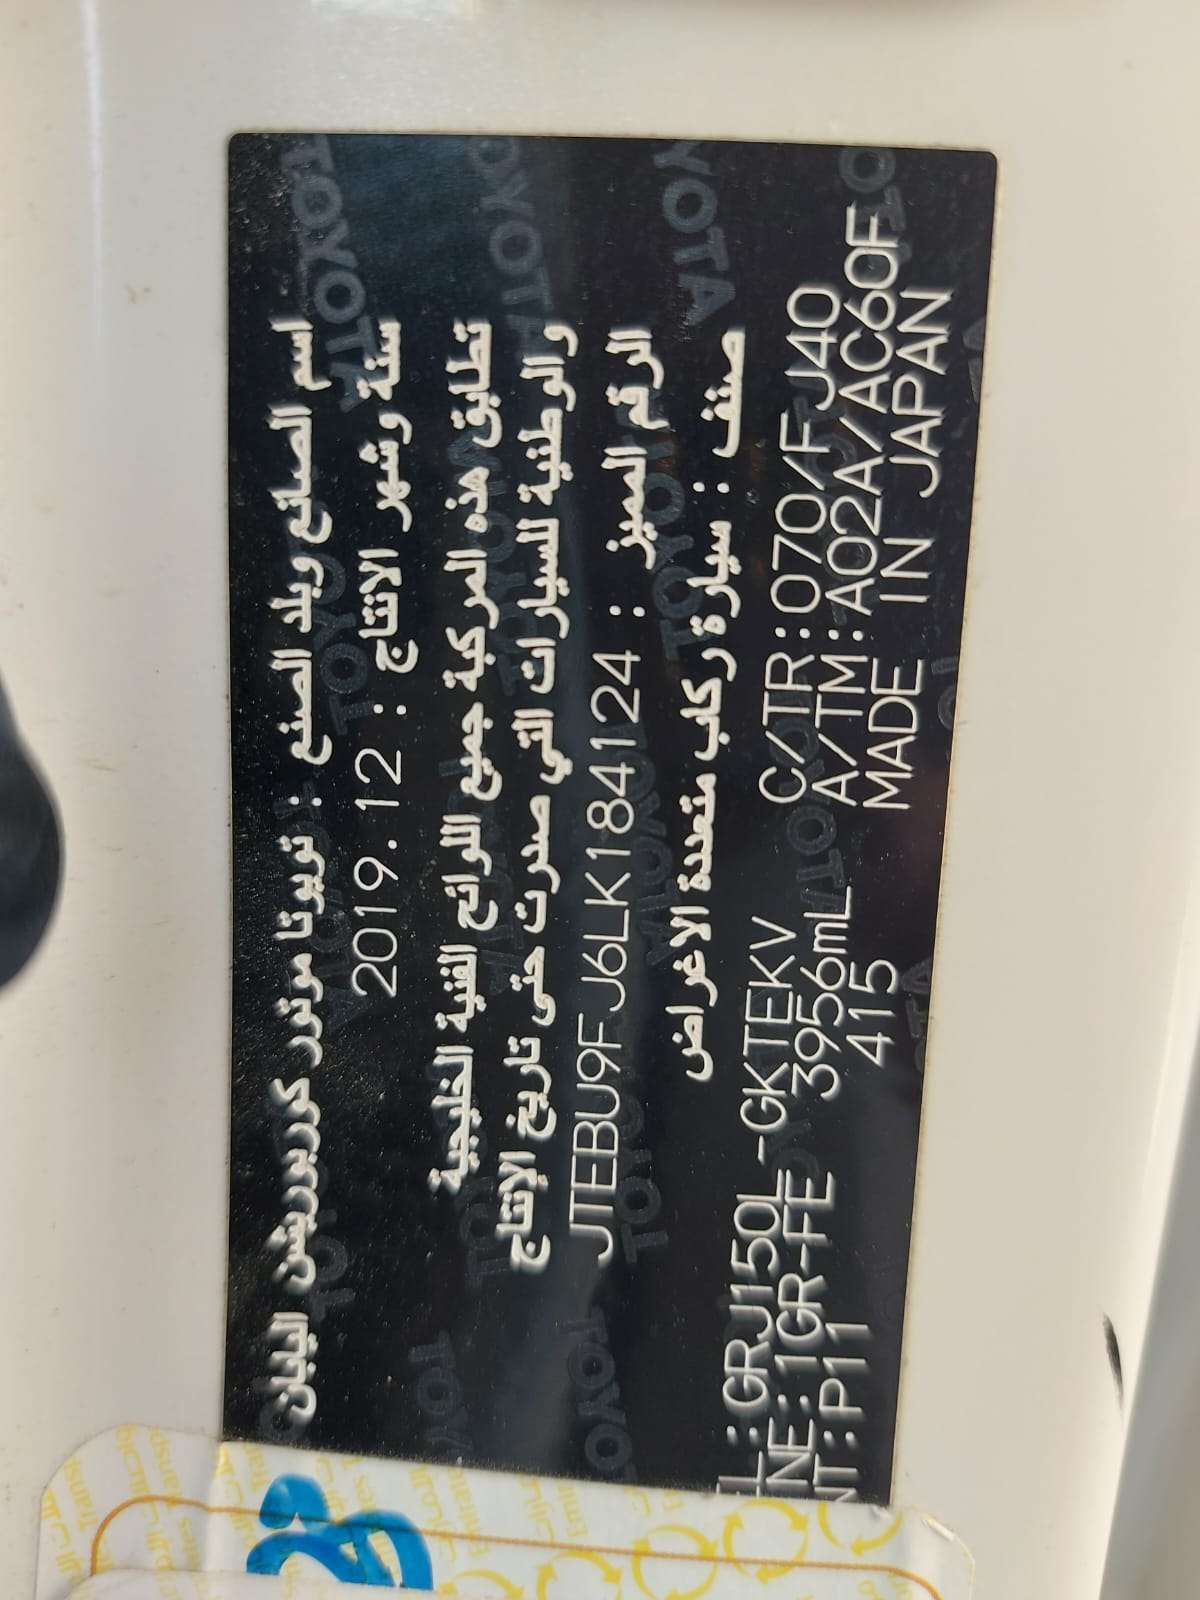 اسم الصانع وبلد الصنع : تويوتا موتور كوربوريشن اليابان
سنة وشهر الانتاج : 2019.12
تطابق هذه المركبة جميع اللوائح الفنية الخليجية
والوطنية للسيارات التي صدرت حتى تاريخ الإنتاج
الرقم المميز : JTEBU9FJ6LK184124
صنف : سيارة ركاب متعددة الاغراض
L:GRJ150L-GKTEKV
NE:1GR-FE 3956mL C/TR:070/FJ40
NT:P11 415 A/TM:A02A/AC60F
MADE IN JAPAN